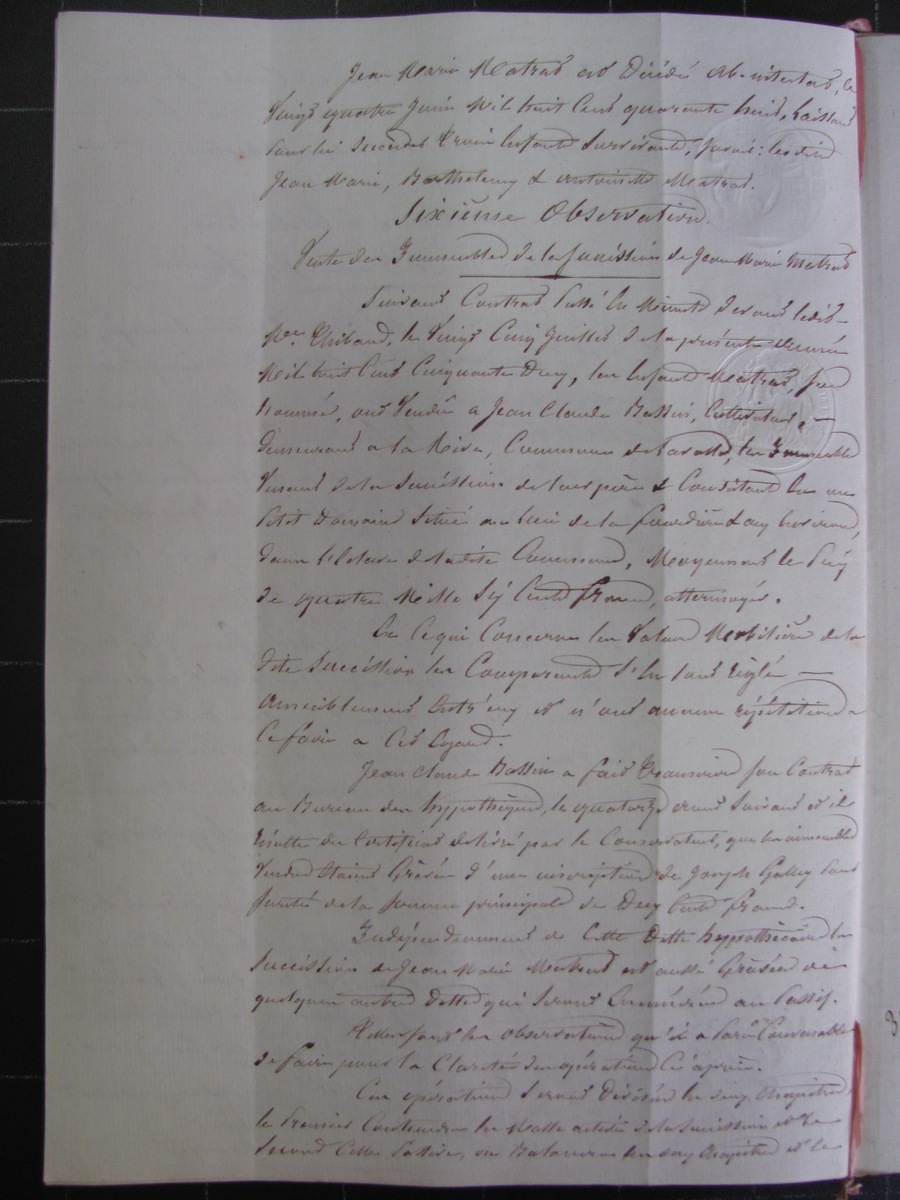 Jean Marie Matras est Décédé ab-intestat, le
Vingt quatre Juin Mil huit Cent quarante huit, laissant
pour lui succéder trois Enfants Survivants, savoir : lesdits
Jean Marie, Barthelemy & antoinette Matras.
Sixième Observation.
Vente des Immeubles de la succession de Jean Marie Matras
Suivant Contrat Passé En Minute devant ledit
Me Thibaud, le Vingt Cinq Juillet de la présente année
Mil huit Cent Cinquante Deux, les Enfants Matras, sus
nommés, ont Vendu a Jean Claude Bassin, Cultivateur,
demeurant a la Rive, Commune de les Immeubles
Venant de la Succession de leur père & Consistant En un
Petit Domaine Situé au lieu de la & aux Environs,
dans l'Etendue de ladite Commune, Moyennant le Prix
de quatre Mille Six Cents francs, attermoyés.
En Ce qui Concerne les Valeurs Mobilières de la
dite Succession les Comparants s'En sont réglés
amiablement Entr'eux et n'ont aucune répétition a
Ce faire a Cet Egard.
Jean Claude Bassin a fait Transcrire son Contrat
au Bureau des hypothèques, le quatorze aout Suivant et il
résulte du Certificat délivré par le Conservateur, que les immeubles
Vendus étaient Grévés d'une inscription de Joseph pour
sureté de la somme principale de Deux Cents francs.
Indépendamment de Cette Dette hypothécaire la
Succession de Jean Marie Matras est aussi Grévée de
quelques autres Dettes qui Seront Enumérées au Passif.
Telles sont les observations qu'il a paru Convenable
de faire pour la Clarté des opérations Ci après.
Ces opérations Seront Divisées En deux Chapitres,
le Premier Contiendra la Masse active de la Succession et le
Second Celle Passive, on Balancera les deux Chapitres et le